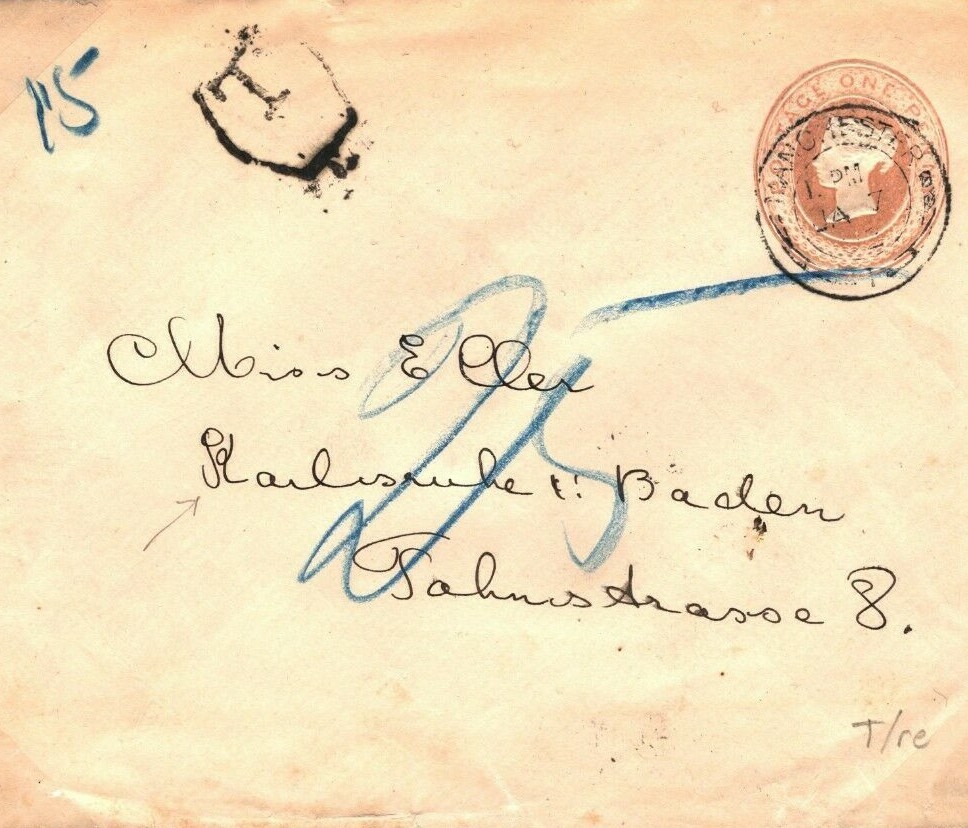 15
T
POSTAGE ONE P
MANCHESTER
1. PM
JA 7
25
Miss Eller
Karlsruhe i: Baden
Jahnstrasse 8.
T/re